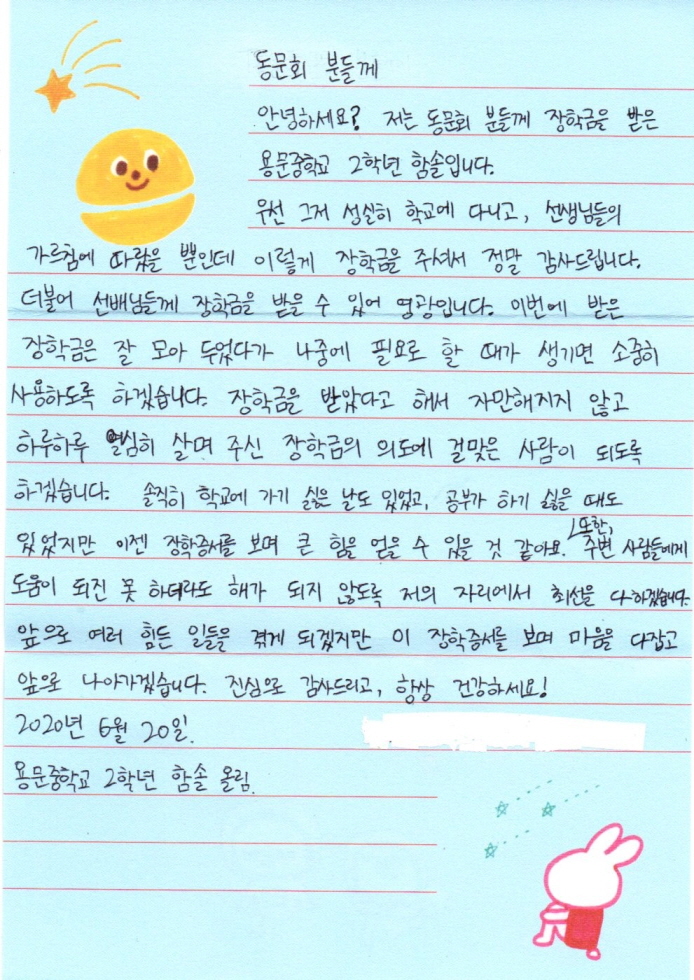 동문회 분들께
안녕하세요? 저는 동문회 분들께 장학금을 받은
용문중학교 2학년 함솔입니다.
우선 그저 성실히 학교에 다니고, 선생님들의
가르침에 따랐을 뿐인데 이렇게 장학금을 주셔서 정말 감사드립니다.
더불어 선배님들께 장학금을 받을 수 있어 영광입니다. 이번에 받은
장학금은 잘 모아 두었다가 나중에 필요로 할 때가 생기면 소중히
사용하도록 하겠습니다. 장학금을 받았다고 해서 자만해지지 않고
하루하루 열심히 살며 주신 장학금의 의도에 걸맞은 사람이 되도록
하겠습니다. 솔직히 학교에 가기 싫은 날도 있었고, 공부가 하기 싫을 때도
있었지만 이젠 장학증서를 보며 큰 힘을 얻을 수 있을 것 같아요. 또한, 주변 사람들에게
도움이 되진 못 하더라도 해가 되지 않도록 저의 자리에서 최선을 다하겠습니다.
앞으로 여러 힘든 일들을 겪게 되겠지만 이 장학증서를 보며 마음을 다잡고
앞으로 나아가겠습니다. 진심으로 감사드리고, 항상 건강하세요!
2020년 6월 20일.
용문중학교 2학년 함솔 올림.